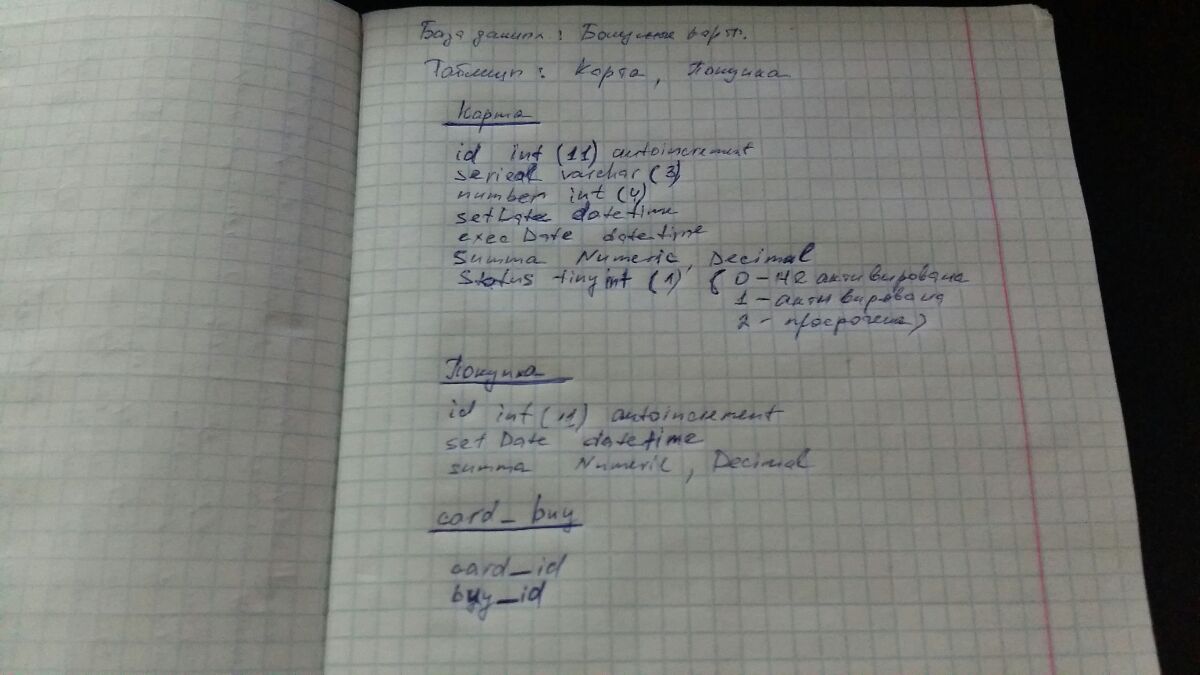 База данных: Бонусные карты.
Таблицы: Карта, Покупка
Карта
id int (11) autoincrement
serial varchar (3)
number int (4)
setDate datetime
execDate datetime
Summa Numeric, Decimal
Status tinyint (1) (0 - не активирована
1 - активирована
2 - просрочена)
Покупка
id int (11) autoincrement
setDate datetime
summa Numeric, Decimal
card_buy
card_id
buy_id